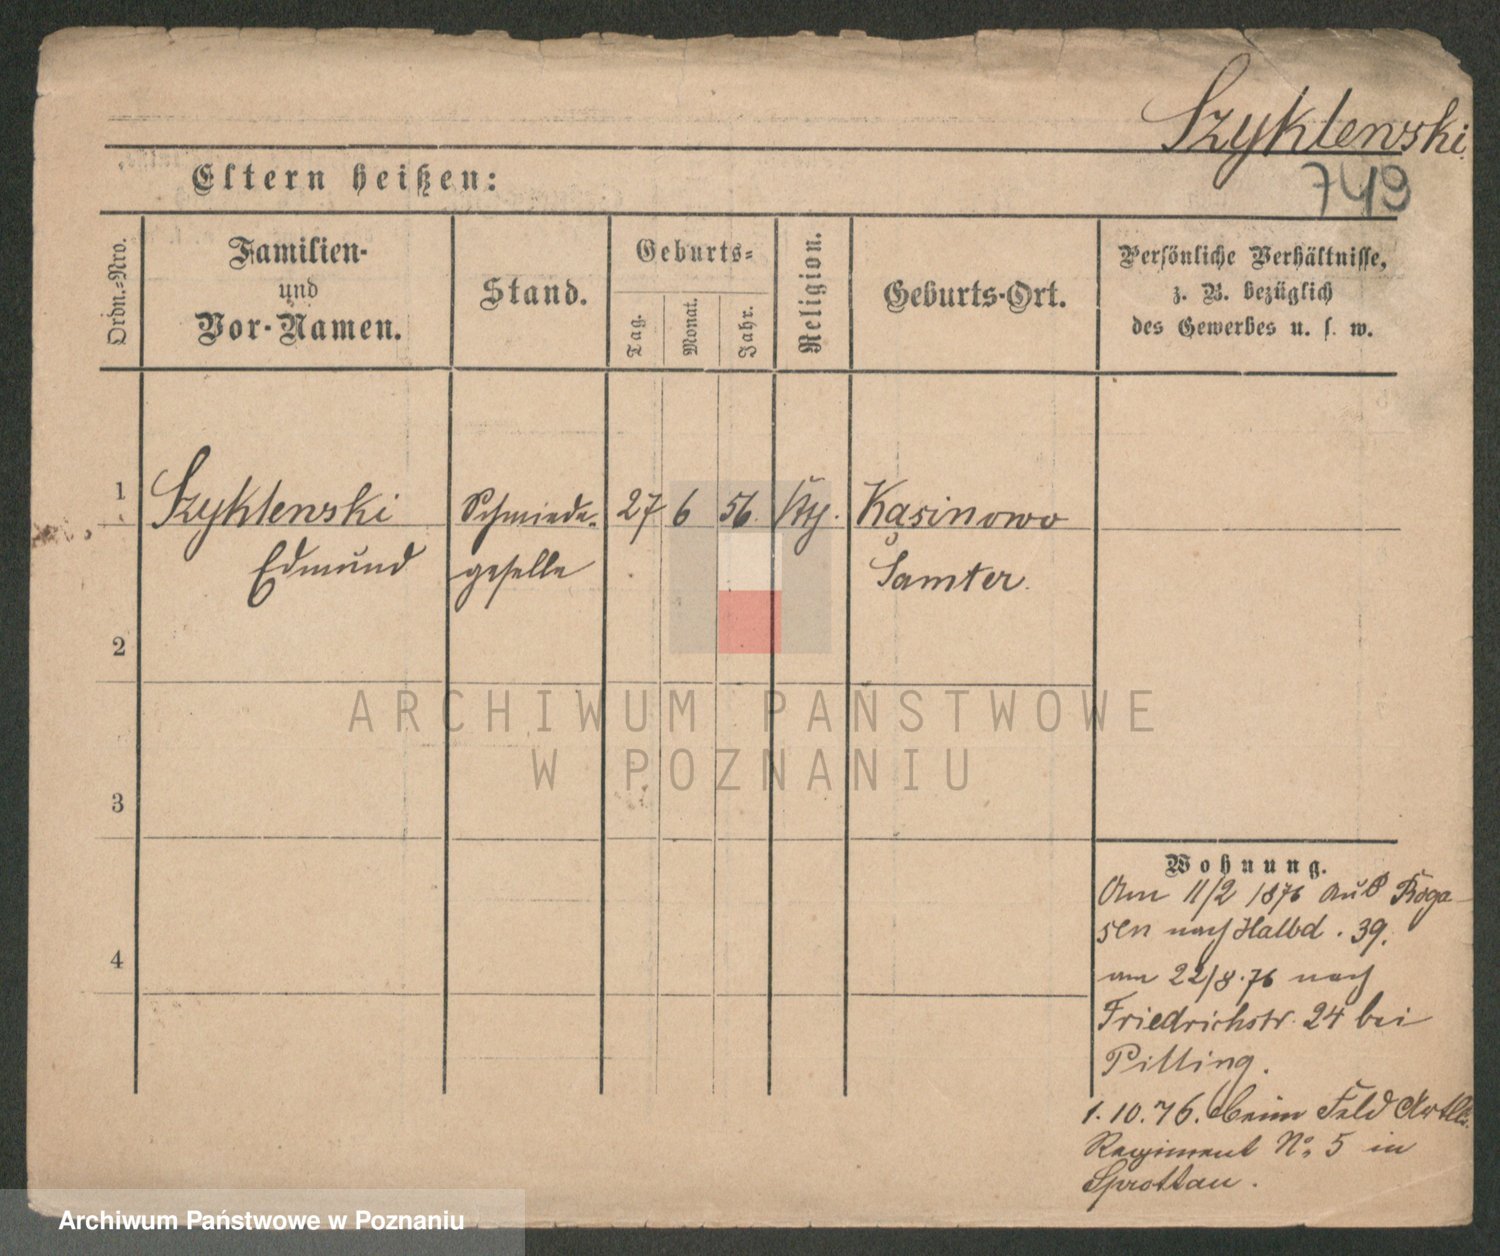 Szyklenski
749
Eltern heißen:
Ordn.-Nro.
Familien-
und
Vor-Namen.
Stand.
Geburts-
Tag.
Monat.
Jahr.
Religion.
Geburts-Ort.
Persönliche Verhältnisse,
z. B. bezüglich
des Gewerbes u. s. w.
1 Szyklenski Schmiede- 27 6 56. Kasinowo
Edmund geselle Samter.
2
3
4
ARCHIWUM PAŃSTWOWE
W POZNANIU
Wohnung.
Am 11/2 1876 aus Roga-
sen nach Halbd. 39.
am 22/8.76 nach
Friedrichstr. 24 bei
Pilling.
1.10.76. beim Feld
Regiment No. 5 in
Sprottau.
Archiwum Państwowe w Poznaniu